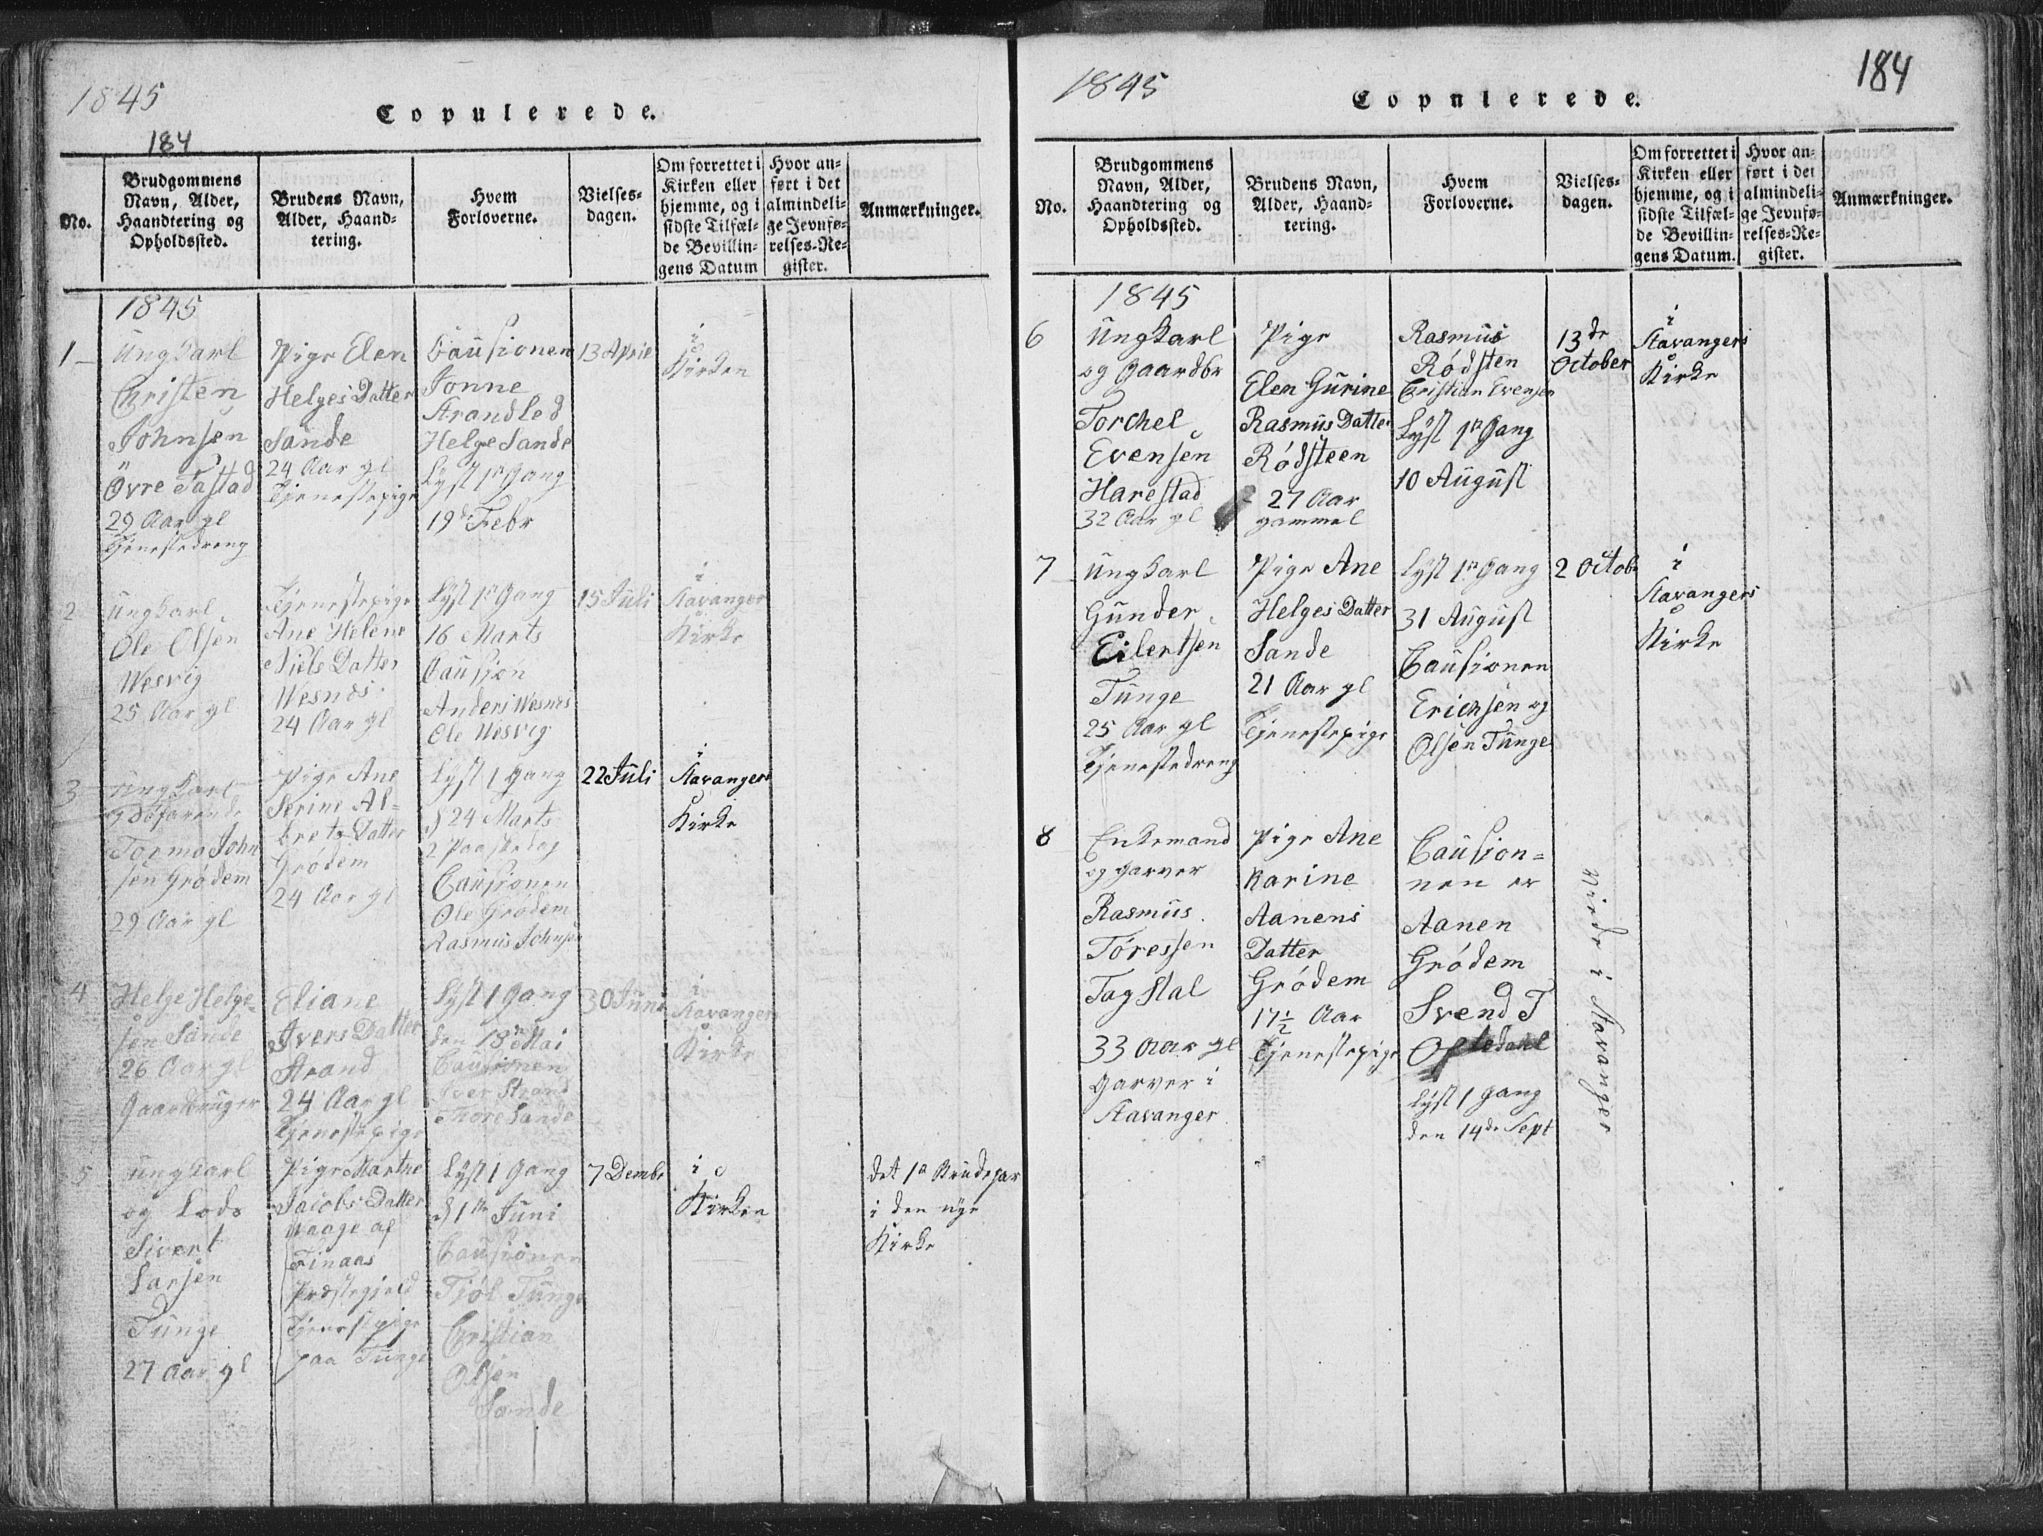 1845
184
Copulerede.
No.
Brudgommens
Navn, Alder,
Haandtering og
Opholdssted.
Brudens Navn,
Alder, Haand-
tering.
Hvem
Forloverne.
Vielses-
dagen.
Om forrettet i
Kirken eller
hjemme, og i
sidste Tilfæl-
de Bevillin-
gens Datum
Hvor an-
ført i det
almindeli-
ge Jevnfø-
relses-Re-
gister.
Anmærkninger.
1845
1
Ungkarl
Christen
Johnsen
Övre Tastad
29 Aar gl
Tjenestedreng
Pige Elen
Helges Datter
Sande
24 Aar gl
Tjenestepige
Causionen
Jonne
Strandled
Helge Sande
Lyst 1r Gang
19d Febr
13 April
i
Kirken
2
Ungkarl
Ole Olsen
Wesvig
25 Aar gl
Tjenestepige
Ane Helene
Niels Datter
Wesnes
24 Aar gl
Lyst 1r Gang
16 Marts
Causion
Anders Wesnes
Ole Wesvig
15 Juli
i
Stavanger
Kirke
3
Ungkarl
Tormo John
sen Grødem
29 Aar gl
Pige Ane
Serine Al-
bretz Datter
Grødem
24 Aar gl
Lyst 1 Gang
d 24 Marts
2 Paaskedag
Causionen
Ole Grødem
Rasmus Johnsen
22 Juli
i
Stavangers
Kirke
4
Helge Helge
sen Sande
26 Aar gl
Gaardbruger
Eliane
Ivers Datter
Strand
24 Aar gl
Tjenestepige
Lyst 1 Gang
den 18n Mai
Causionen
Iver Strand
Thore Sande
30 Juni
i
Stavangers
Kirke
5
Ungkarl
og Lods
Sivert
Larsen
Tunge
27 Aar gl
Pige Marthe
Jacobs Datter
Waage af
Finaas
Præstegjeld
Tjenestepige
paa Tunge
Lyst 1 Gang
d 1te Juni
Causionen
Tjöl Tunge
Christian
Olsen
Sande
7 Dembr
i
Kirken
det 1e Brudepar
i den nye
Kirke
1845
Copulerede.
184
No.
Brudgommens
Navn, Alder,
Haandtering og
Opholdssted.
Brudens Navn,
Alder, Haand-
tering.
Hvem
Forloverne.
Vielses-
dagen.
Om forrettet i
Kirken eller
hjemme, og i
sidste Tilfæl-
de Bevillin-
gens Datum.
Hvor an-
ført i det
almindeli-
ge Jevnfø-
relses-Re-
gister.
Anmærkninger.
1845
6
Ungkarl
og Gaardbr
Torchel
Evensen
Harestad
32 Aar gl
Pige
Elen Gurine
Rasmus Datter
Rødsteen
27 Aar
gammel
Rasmus
Rødsten
Christian Evensen
Lyst 1n Gang
10 August
13de
October
i
Stavangers
Kirke
7
Ungkarl
Gunder
Eilertsen
Tunge
25 Aar gl
Tjenestedreng
Pige Ane
Helges Datter
Sande
21 Aar gl
Tjenestepige
Lyst 1n Gang
31 August
Causionen
Erichsen og
Olsen Tunge
2 Octob
i
Stavangers
Kirke
8
Enkemand
og garver
Rasmus
Töressen
Tagstal
33 Aar gl
Garver i
Stavanger
Pige Ane
Karine
Aanens
Datter
Grødem
17½ Aar
Tjenestepige
Causion=
nen er
Aanen
Grödem
Svend T
Oftedahl
Lyst 1 Gang
den 14de Sept
Viede i Stavanger